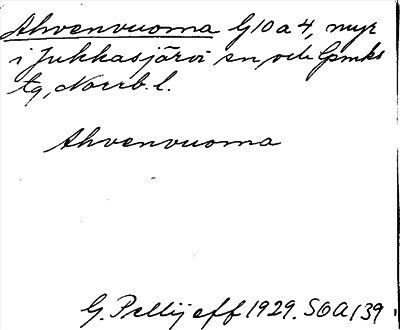 Ahvenvuoma G10a4, myr
i Jukkasjärvi sn, och Lpmks
tg, Norrb. l.
Ahvenvuoma
G. Pellijeff 1929. SOA 139